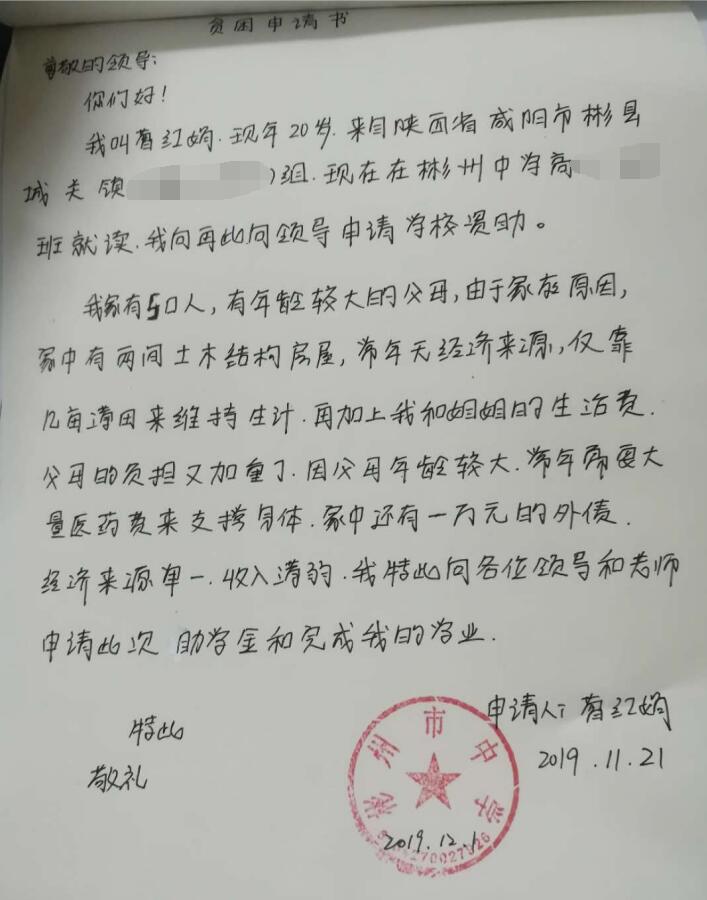 贫困申请书
尊敬的领导:
你们好!
我叫 红娟.现年20岁.来自陕西省咸阳市彬县
城关镇 组.现在在彬州中学高
班就读.我向再此向领导申请学校资助。
我家有50人,有年龄较大的父母,由于家庭原因,
家中有两间土木结构房屋,常年无经济来源,仅靠
几亩薄田来维持生计.再加上我和姐姐的生活费.
父母的负担又加重了.因父母年龄较大.常年需要大
量医药费来支撑身体.家中还有一万元的外债.
经济来源单一.收入薄弱.我特此向各位领导和老师
申请此次 助学金和完成我的学业.
申请人: 红娟
特此
2019.11.21
敬礼
彬州市中学
2019.12.1